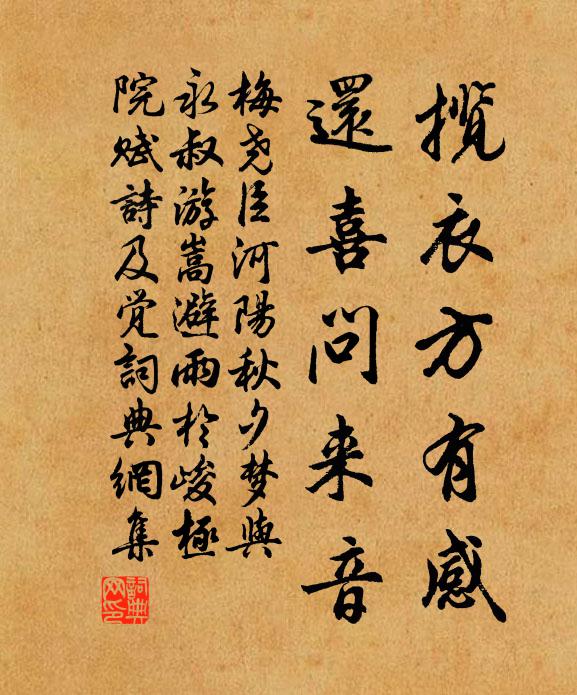 攬衣方有感
還喜問来音
梅尭臣河陽秋夕梦與
永叔游嵩避雨於峻極
院赋詩及覚詞典網集
詞典网印